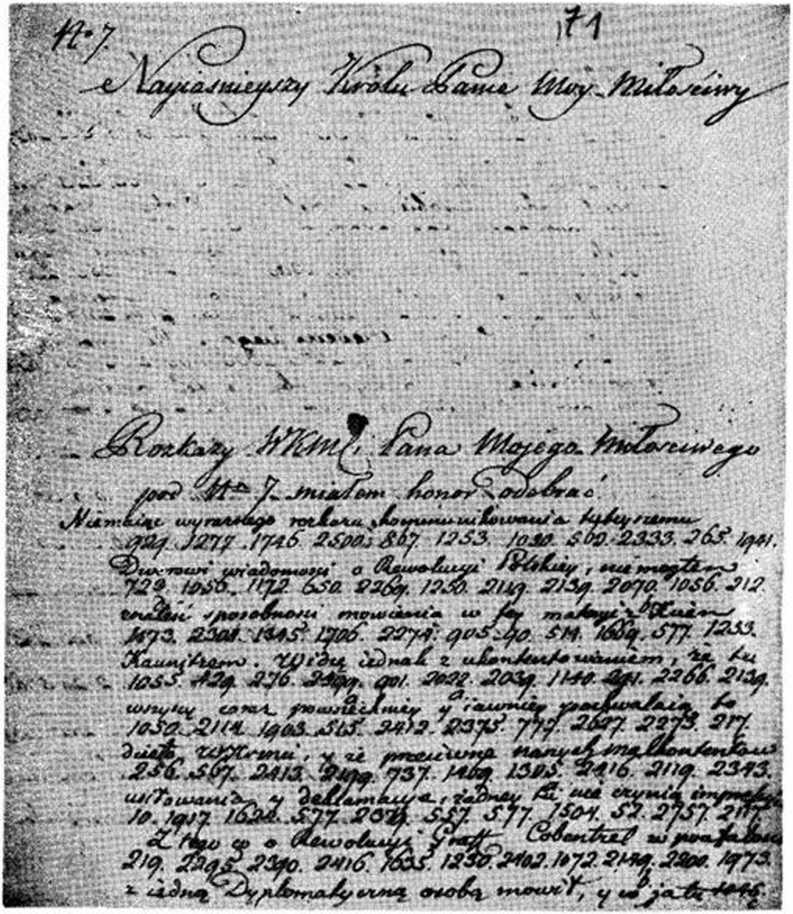 No 7. 71
Nayiaśnieyszy Królu Panie Moy Miłościwy
Rozkazy WKMci Pana Mojego Miłościwego
pod No 7 miałem honor odebrać
Niemaiąc wyraznego rozkazu kommunikowania tuteyszemu
929. 1277. 1746. 2500. 867. 1253. 1030. 562. 2333. 265. 1941.
Dworowi wiadomosci o Rewolucyi Polskiey, niemogłem
729. 1056. 1172. 650. 2269. 1250. 2119. 2139. 2070. 1056. 212.
znaleść sposobnosci mowienia w tey materyi z Xciem
1473. 2301. 1345. 1706. 2274. 905. 90. 514. 1669. 577. 1233.
Kaunitzem. Widzę iednak z ukontentowaniem, że tu
1055. 429. 276. 2499. 901. 2022. 2039. 1140. 291. 2266. 2139.
wszyscy coraz powszechniey y iawniey pochwalaią to
1050. 2114. 1903. 515. 2412. 2375. 772. 2627. 2273. 217.
dzieło WKMci, y że przeciwne naszych malkontentow
256. 567. 2413. 2199. 737. 1469. 1305. 2416. 2119. 2343.
usiłowania y deklamacye, żadney tu nie czynią
10. 1917. 1622. 577. 557. 577. 1504. 52. 2757.
Z tego co o Rewolucyi Graff Cobentzel w
219. 2295. 2390. 2416. 1635. 1230. 2402. 1072. 2149. 2200. 1973.
z iedną Dyplomatyczną osobą mowił, y co ja tu